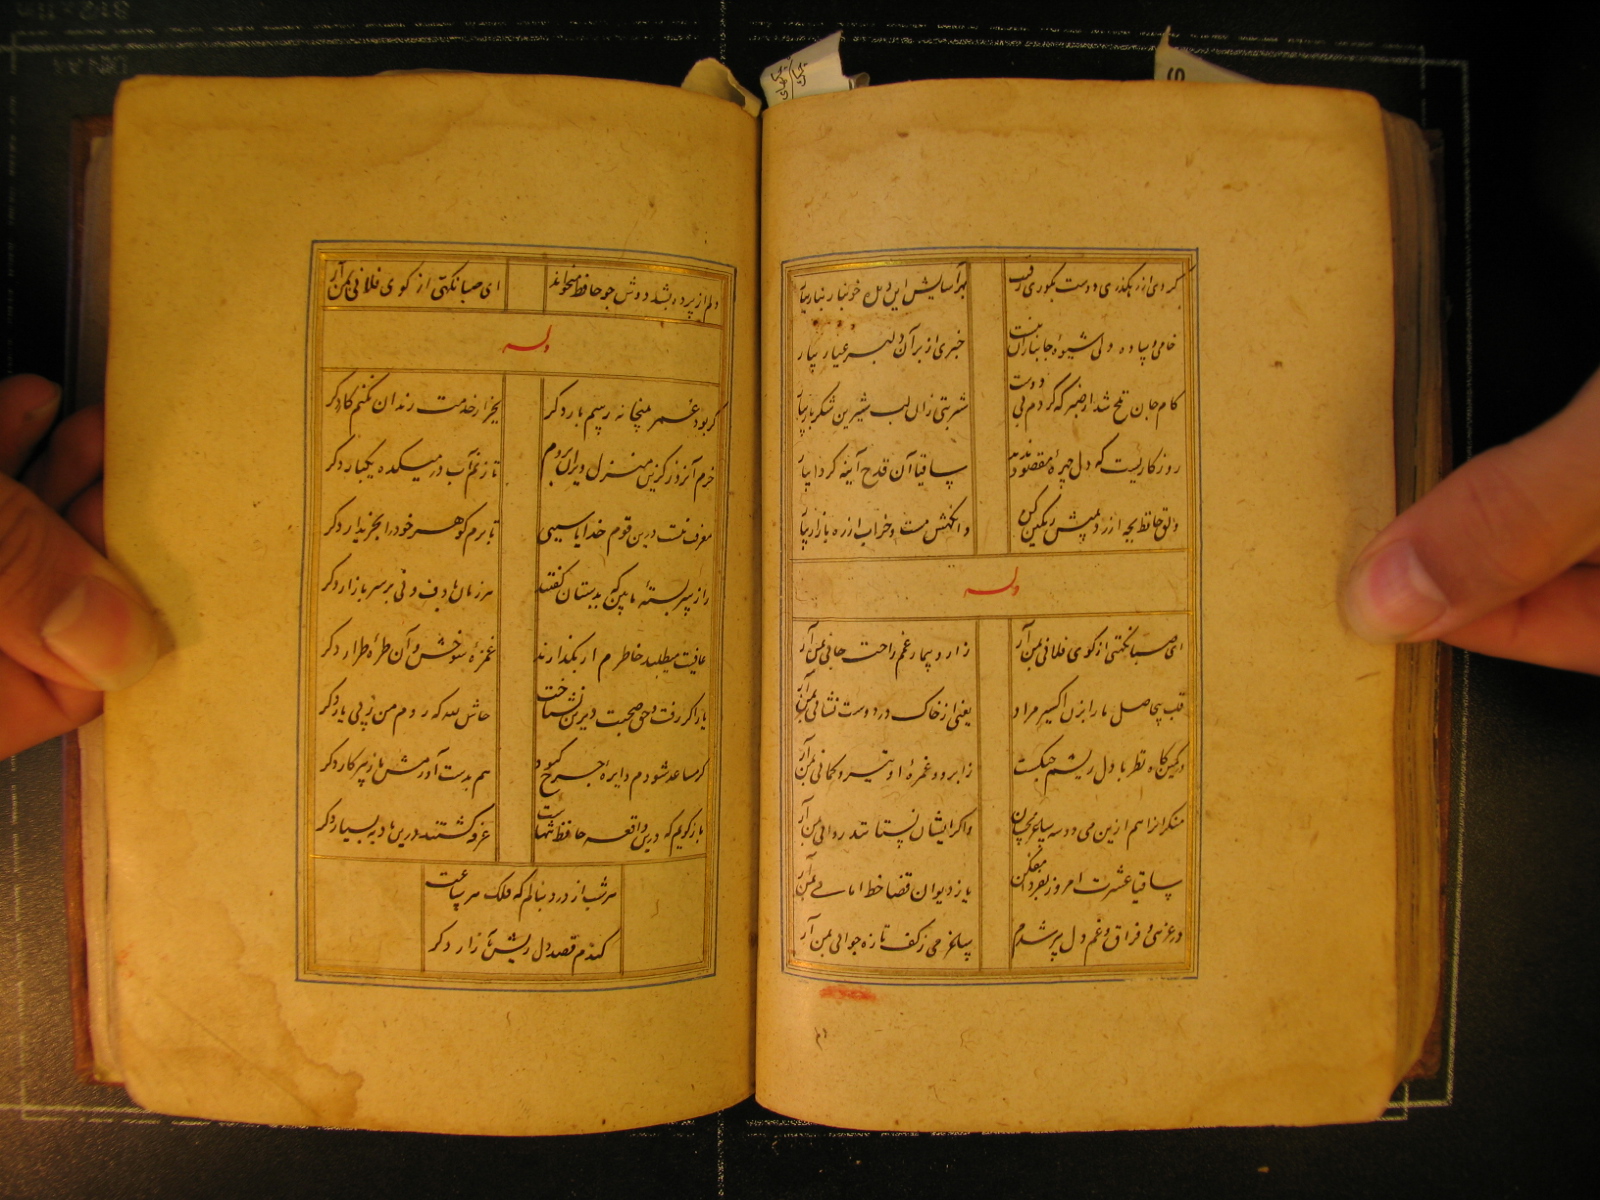 کردی از رهکذری دوست بکوری رقیب بهر آسایش این دیده خونبار بیار
خامی و ساده دلی شیوه جانبازان نیست خبری از بر آن دلبر عیار بیار
کام جان تلخ شد از صبر که کردم بی دوست شربتی زان لب شیرین شکربار بیار
روزکاریست که دل چهره مقصود ندید ساقیا آن قدح آینه کردار بیار
دلق حافظ بچه ارزد بمیش رنکین کن وانکهش مست و خراب از ره بازار بیار
وله
ای صبا نکهتی از کوی فلانی بمن آر زار و بیمار غمم راحت جانی بمن آر
قلب بیحاصل ما را بزن اکسیر مراد یعنی از خاک در دوست نشانی بمن آر
در کمینکاه نظر با دل ریشم جنکست ز ابرو و غمزه او تیر و کمانی بمن آر
منکرانرا هم ازین می دو سه ساغر بچشان و اکر ایشان نستانند روانی بمن آر
ساقیا عشرت امروز بفردا مفکن یا ز دیوان قضا خط امانی بمن آر
در غریبی و فراق و غم دل پیر شدم ساغر می ز کف تازه جوانی بمن آر
دلم از پرده بشد دوش چو حافظ میخواند ای صبا نکهتی از کوی فلانی بمن آر
وله
کر بود عمر بمیخانه رسم بار دکر بجز از خدمت رندان نکنم کار دکر
خرم آنروز کزین منزل ویران بروم تا زنم آب در میکده یکبار دکر
معرفت نیست درین قوم خدایا سببی تا برم کوهر خود را بخریدار دکر
راز سربسته ما بین که بدستان کفتند هر زمان با دف و نی بر سر بازار دکر
عافیت میطلبد خاطرم ار بکذارند غمزه شوخش و آن طره طرار دکر
یار اکر رفت و حق صحبت دیرین نشناخت حاش لله که روم من ز پی یار دکر
کر مساعد شودم دایره چرخ کبود هم بدست آورمش باز بپرکار دکر
باز کویم که درین واقعه حافظ تنهاست غرقه کشتند درین بادیه بسیار دکر
هر شب از درد بنالم که فلک هر ساعت
کندم قصد دل ریش بآزار دکر